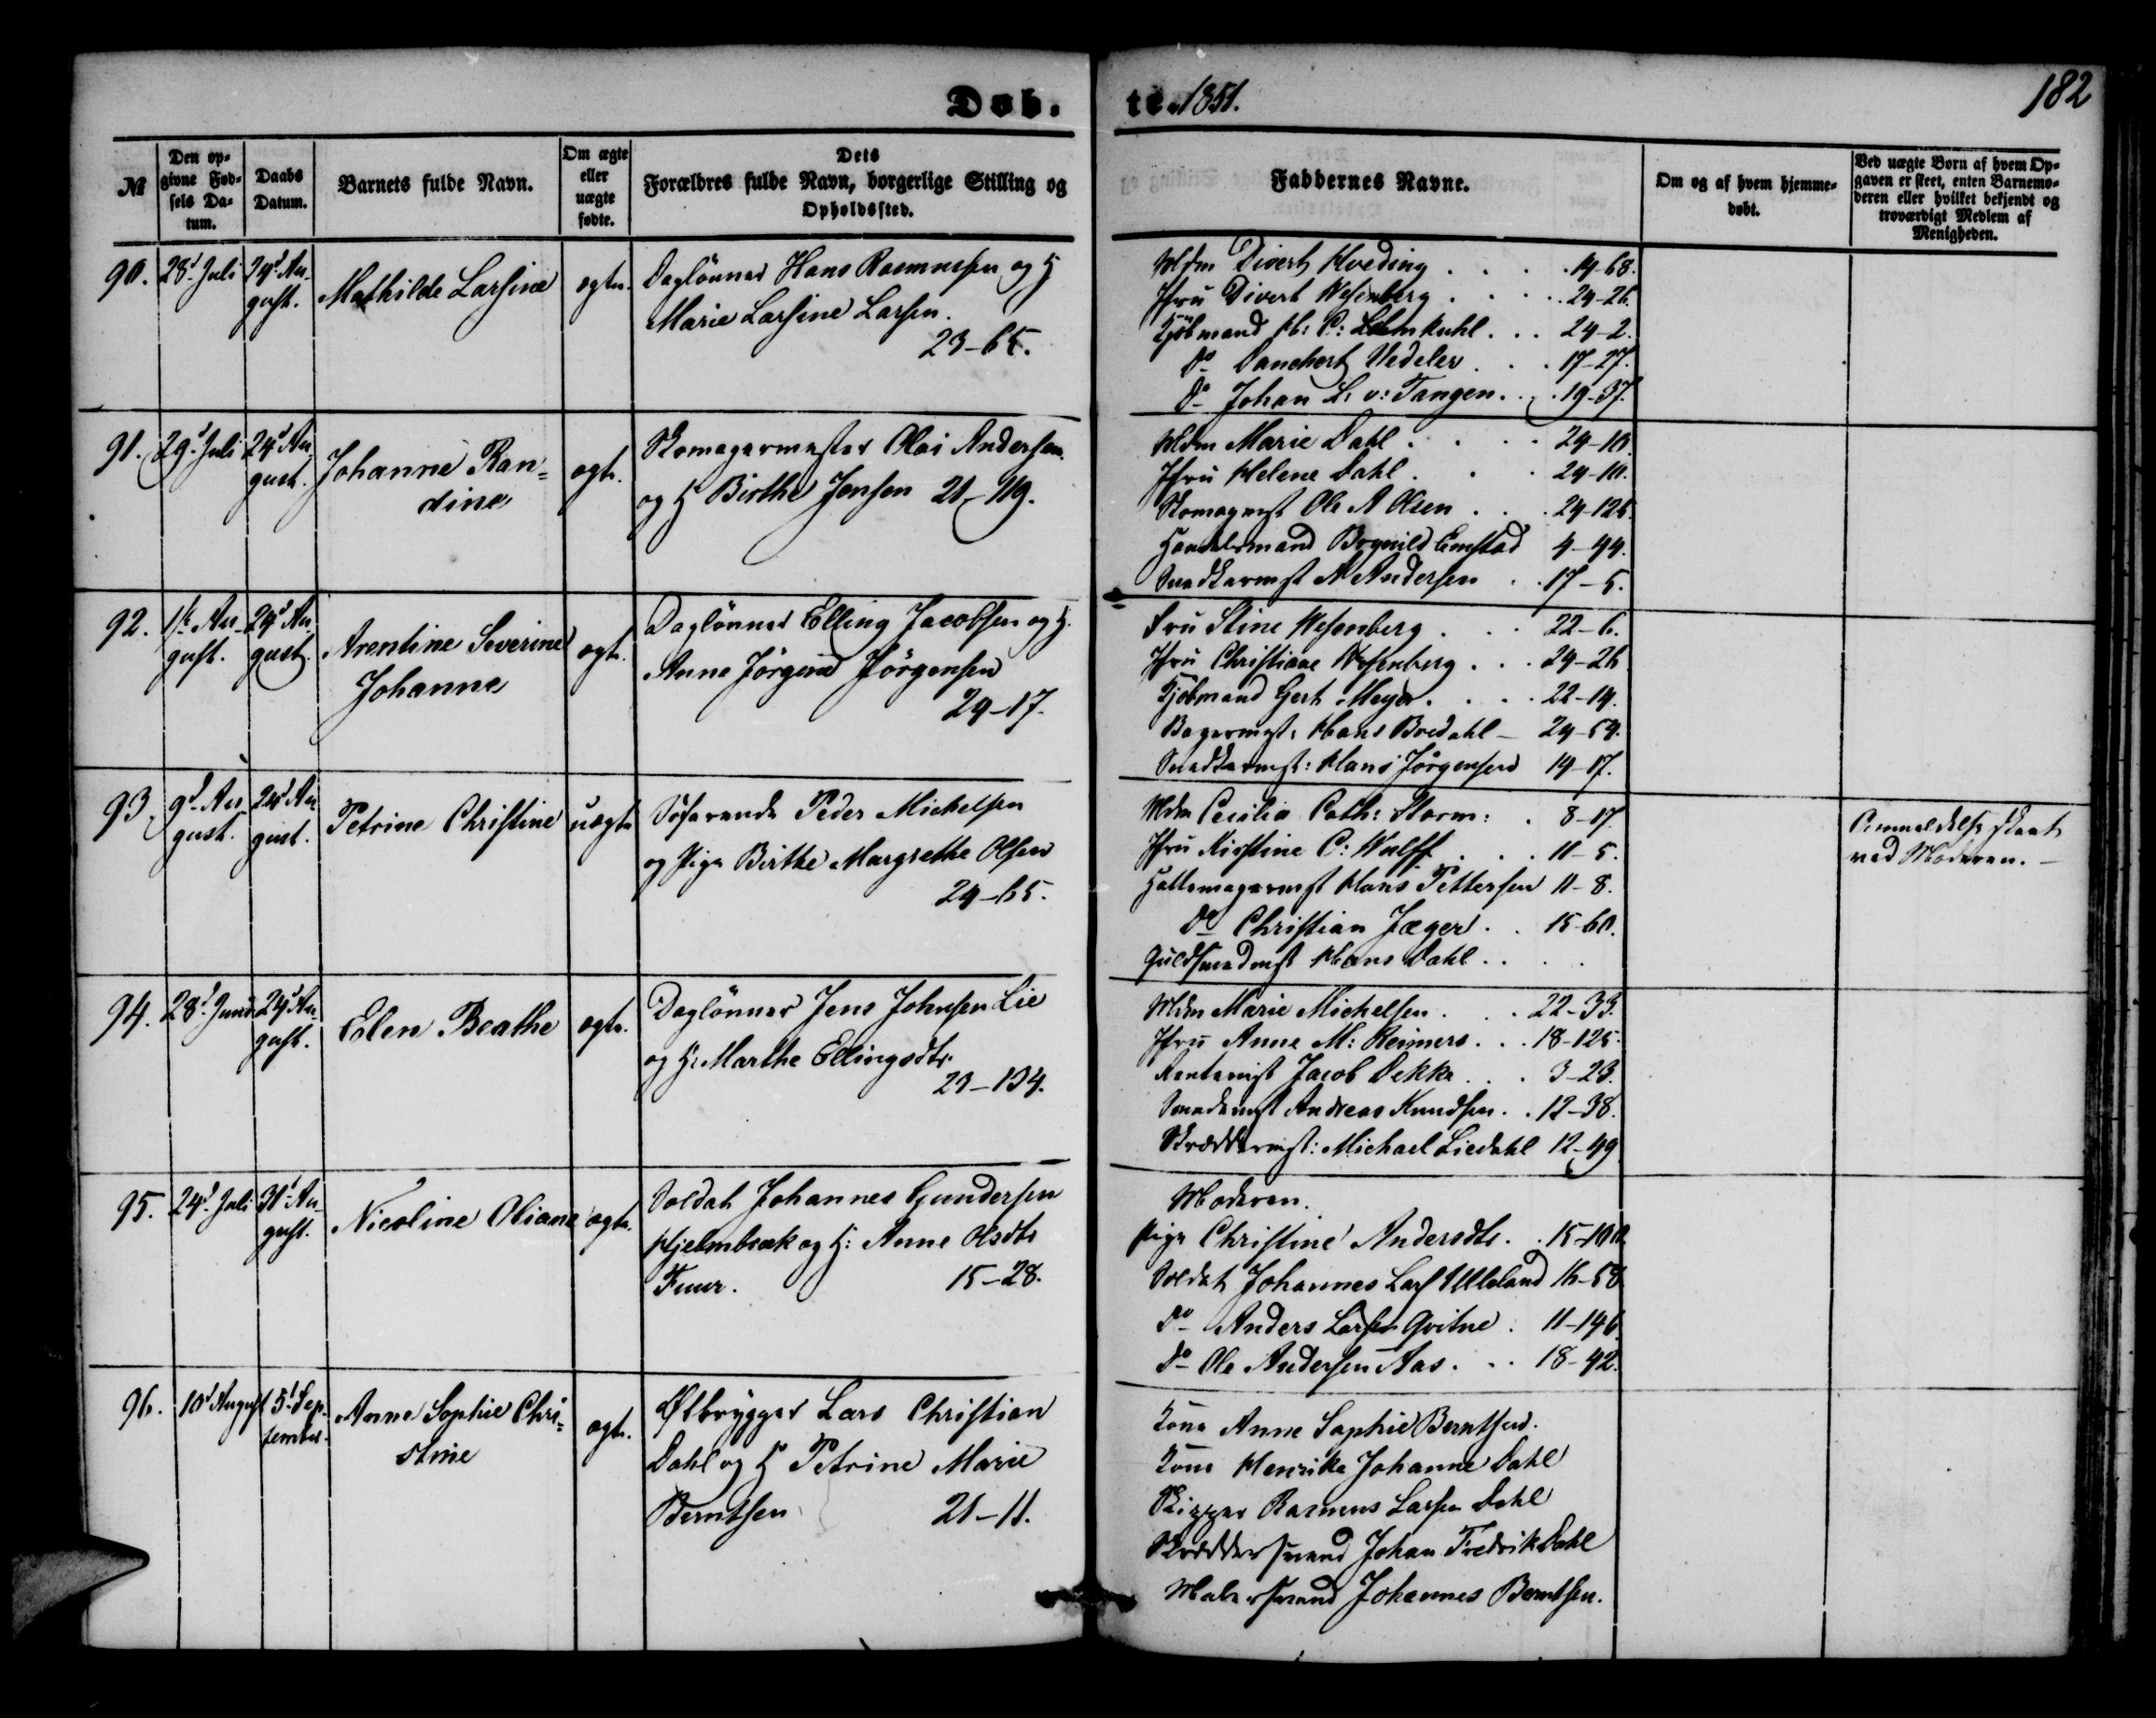 Døb.
te 1851.
182
№
Den op-
givne Fød-
sels Da-
tum.
Daabs
Datum.
Barnets fulde Navn.
Om ægte
eller
uægte
fødte.
Dets
Forældres fulde Navn, borgerlige Stilling og
Opholdssted.
Faddernes Navne.
Om og af hvem hjemme-
døbt.
Ved uægte Børn af hvem Op-
gaven er skeet, enten Barnemo-
deren eller hvilket bekjendt og
troværdigt Medlem af
Menigheden.
90.
28d Juli
24d Au-
gust.
Mathilde Larsine
ægte.
Daglønner Hans Rasmussen og H
Marie Larsine Larsen.
23-65.
Mdm Divert Hveding . . . . 14-68.
Jfru Divert Wesenberg . . . . 24-26.
Kjøbmand H: C: Lehmkuhl . . . 24-2.
Do Danchert Vedeler . . . 17-27.
Do Johan L. v: Tangen . . . 19-37.
91.
29d Juli
24d Au-
gust.
Johanne Ran-
dine
ægte.
Skomagermester Olai Andersen
og H Birthe Jensen 21-119.
Mdm Marie Dahl . . . . 24-10.
Jfru Helene Dahl . . . 24-10.
Skomagmst Ole A Olsen . . . 24-126.
Handelsmand Emstad 4-44.
Snedkermst N Andersen . . 17-5.
92.
1te Au-
gust.
24d Au-
gust.
Arentine Severine
Johanne
ægte.
Daglønner Elling Jacobsen og H.
Anne Jørgine Jørgensen
24-17.
Fru Stine Wesenberg . . . 22-6.
Jfru Christiane Wesenberg . . . 24-26
Kjøbmand Gert Meyer . . . . 22-14.
Bagermst: Hans Bredahl - 24-54.
Snedkermst: Hans Jørgensen 14-17.
93.
9d Au-
gust.
24d Au-
gust.
Petrine Christine
uægte
Søfarende Peder Michelsen
og Pige Birthe Margrethe Olsen
24-65.
Mdm Cecilia Cath: Storm: . 8-17.
Jfru Kirstine C: Wulff . . . 11-5.
Hattemagermst Hans Pettersen 11-8.
Do Christian Jæger . . 15-60.
Guldsmedmst Hans Dahl . . . .
Anmeldelse skeet
ved Moderen.-
94.
28d Juni
24d Au-
gust.
Elen Beathe
ægte.
Daglønner Jens Johnsen Lie
og H: Marthe Ellingsdtr
23-134.
Mdm Marie Michelsen . . . 22-33.
Jfru Anne M: Reimers . . . 18-125.
Rentenist Jacob Dekke . . . 3-23.
Smedemst Andreas Knudsen . . 12-38.
Skræddermst: Michael Liedahl 12-49
95.
24d Juli
31d Au-
gust.
Nicoline Oliane
ægte.
Soldat Johannes Gundersen
Hjelmbræk og H: Anne Olsdtr
Fuur. 15-28.
Moderen.
Pige Christine Andersdtr . . 15-100.
Soldat Johannes Lars Ulleland 16-58
Do Anders Larsen Qvitne . 11-146
Do Ole Andersen Aas . . . 18-42.
96.
10d August
5d Sep-
tember.
Anne Sophie Chri-
stine
ægte.
Ølbrygger Lars Christian
Dahl og H Petrine Marie
Berntsen 21-11.
Kone Anne Sophie Berntsen.
Kone Henrike Johanne Dahl
Skipper Rasmus Larsen Dahl
Skræddersvend Johan Fredrik Dahl
Malersvend Johannes Berntsen.